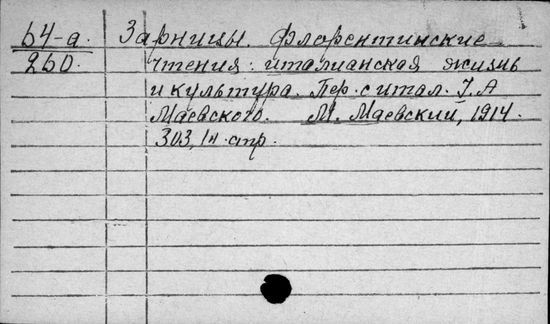 64-а. Зарницы. Флорентинские
260. чтения: италианская жизнь
и культура. Пер. с итал. І. А
Маевского. М. Маевский, 1914.
303, 1 н. стр.